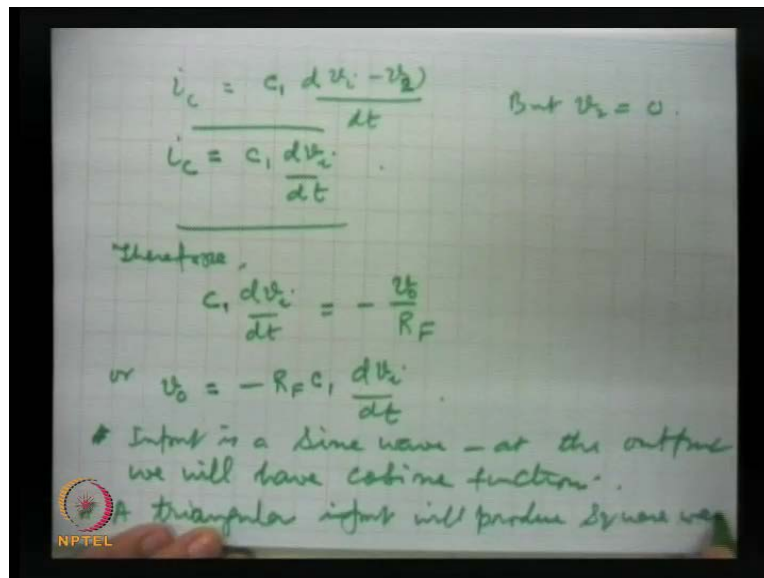 i_c = C_1 d v_i - v_2) / dt But v_2 = 0.
i_c = C_1 dv_i / dt .
Therefore,
C_1 dv_i / dt = - v_0 / R_F
or v_0 = - R_F C_1 dv_i / dt .
* Input is a Sine wave - at the output
we will have cosine function.
A triangular input will produce Square wav
NPTEL